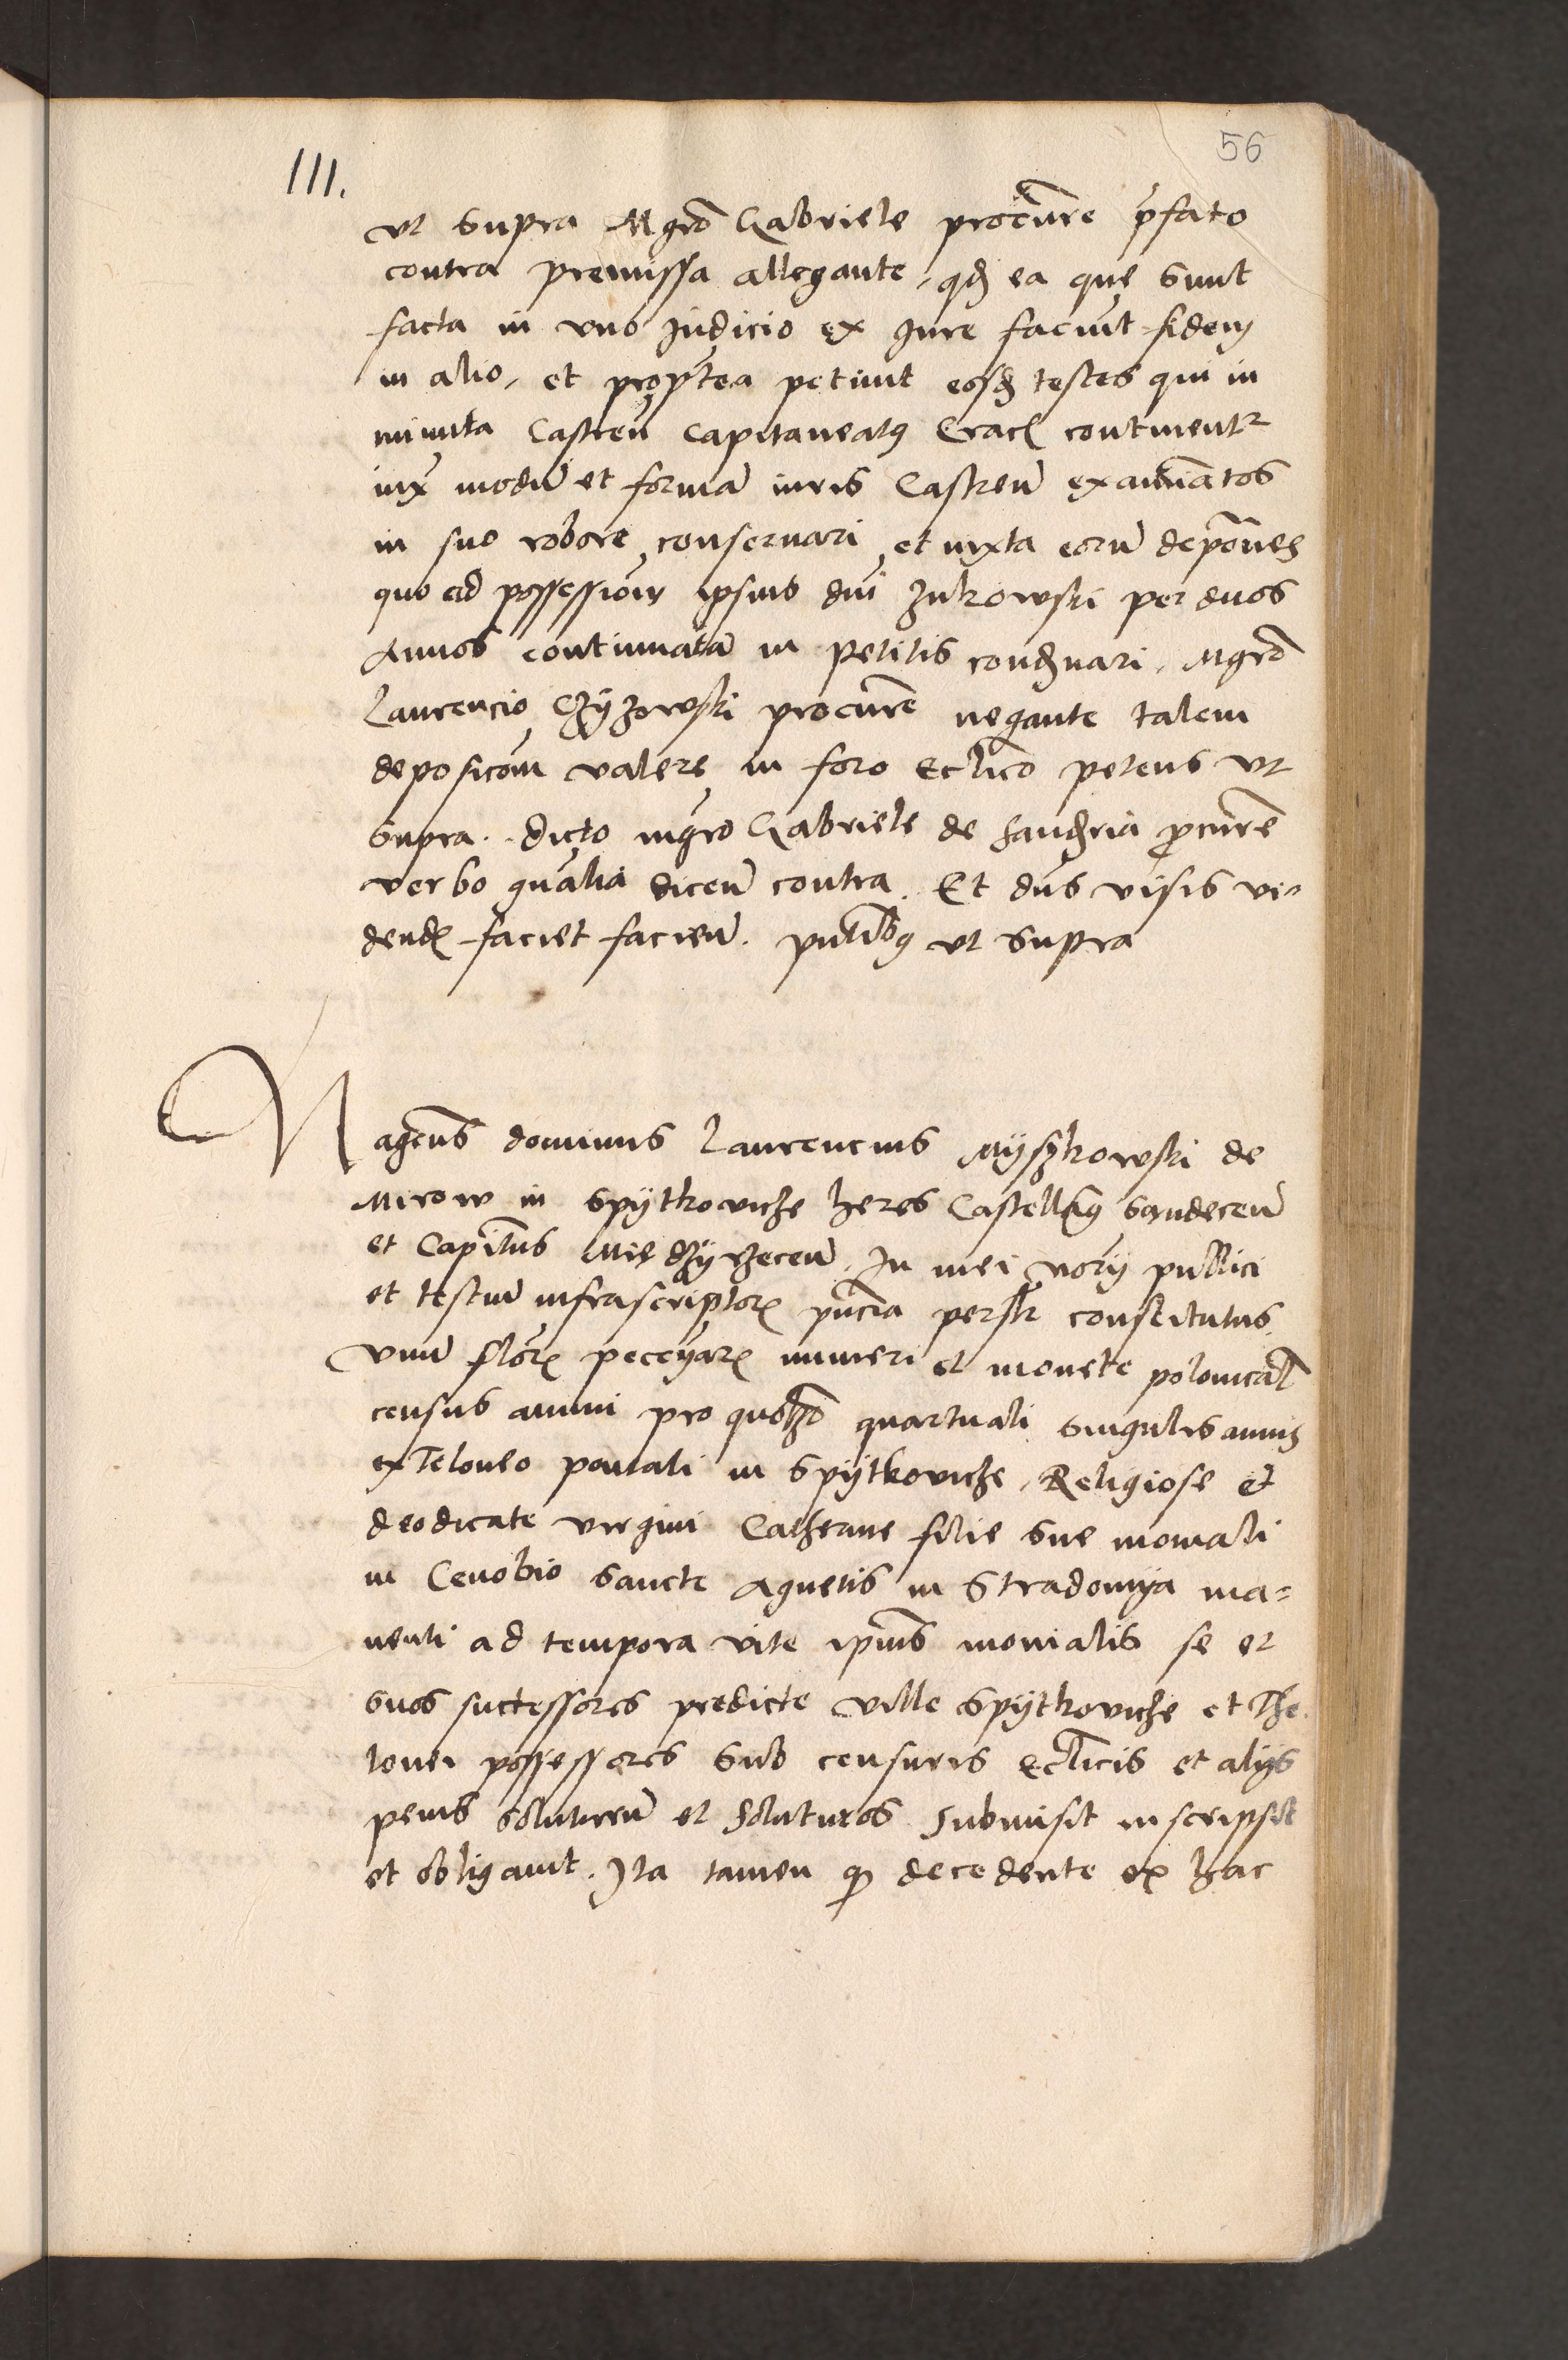 56
111.
vt supra Mgro Gabriele procure pfato
contra premissa allegante, qd ea que sunt
facta in vno Judicio ex Jure faciut fidem
in alio, et propterea petiuit eosd testes qui in
minuta Castren Capitaneatus Crac continentr
iux modu et forma iuris Castren examinatos
in suo robore conseruari et iuxta eoru depones
quo ad possessiom ipsius dni Zukowski per duos
Annos continuata in petitis condnari. Mgro
Laurencio Czyzowski procure negante talem
deposicom valere in foro Ecclico petens vt
supra. Dicto mgro Gabriele de procure
verbo gnalia dicen contra. Et dns visis vi-
dend faciet facien. pntibus vt supra
Magcus dominus Laurencius Myszkowski de
Mirow in Spytkoviche heres Castellanus Sandecen
et Capitnus Miedzyrzecen. In mei nory publici
et testiu infrascriptor pncia personalr constitutus
vnu flor peccuar numeri et monete polonicalis
census annui pro quolibet quartuali singulis annis
ex Teloneo pontali in Spytkoviche, Religiose et
deodicate virgini Catherine filie sue moniali
in Cenobio sancte Agnetis in Stradomya ma-
nenti ad tempora vite ipsius monialis se et
suos successores predicte ville Spytkoviche et The-
lonei possessores sub censuris Ecclicis et alijs
penis soluturu et soluturos submisit inscripsit
et obligauit. Ita tamen qd decedente ex hac